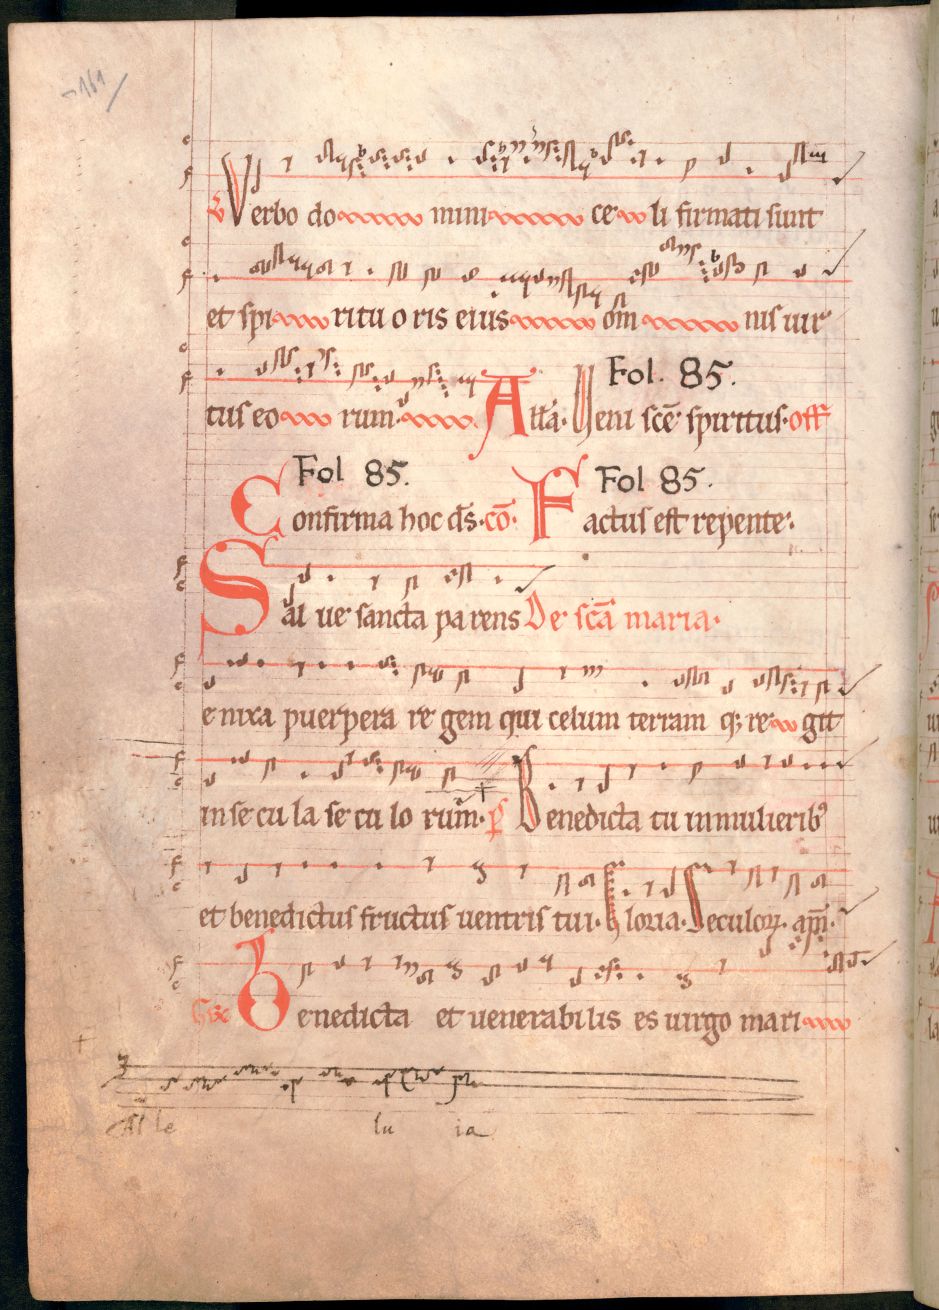 161
Verbo do mini ce li firmati sunt
et spi ritu o ris eius om nis uir
Fol. 85.
tus eo rum. A ll̄a. Veni sc̄e spiritus. off
Fol 85. Fol 85.
Confirma hoc d̄s. cō. Factus est repente.
Sal ue sancta pa rens De sc̄a maria.
e nixa puerpera re gem qui celum terram q; re git
in se cu la se cu lo rum. p̄s Benedicta tu in mulierib9
et benedictus fructus uentris tui. Gloria. Seculoꝝ. am̄.
Benedicta et uenerabilis es uirgo mari
Al le lu ia